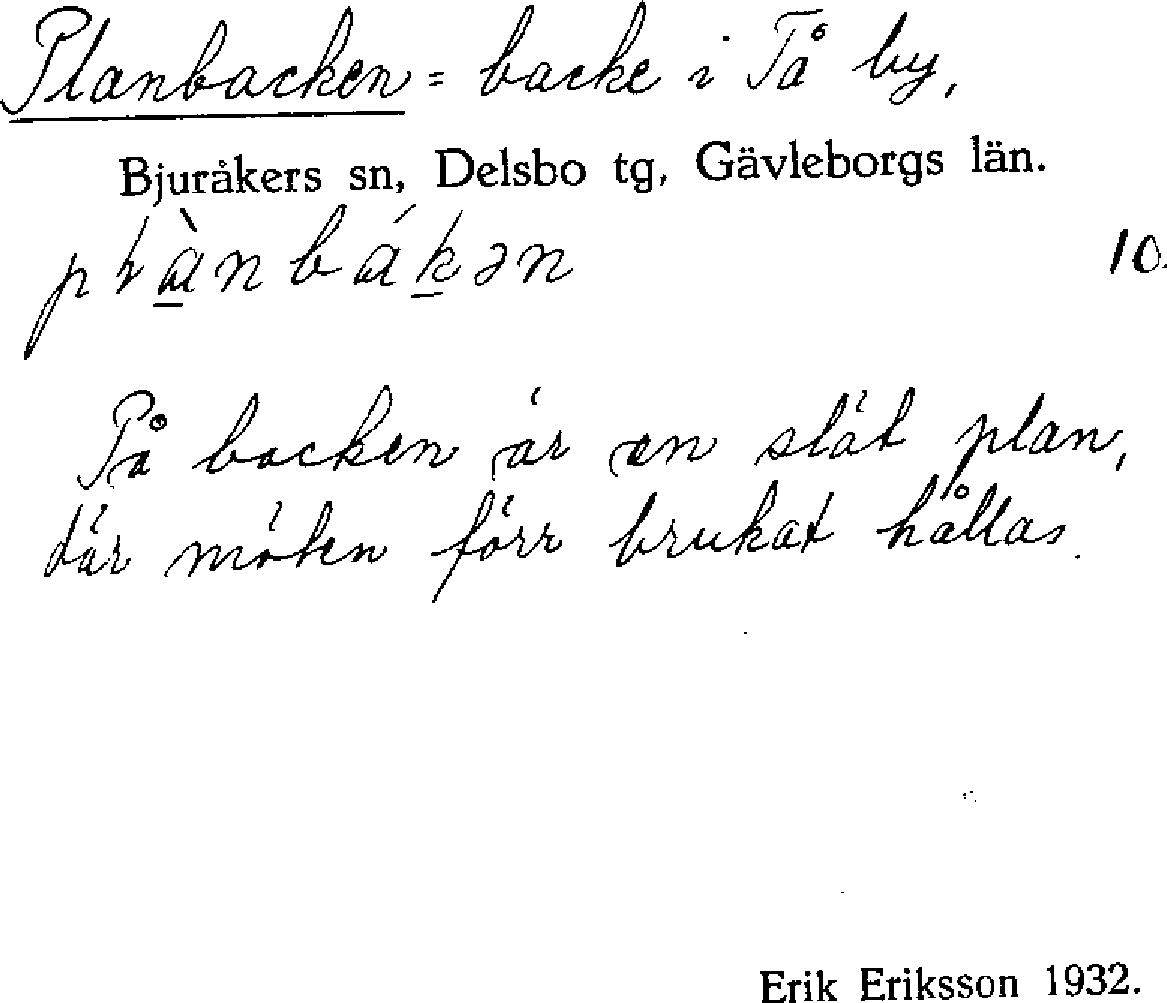 Planbacken = backe i Tå by,
Bjuråkers sn, Delsbo tg, Gävleborgs län.
10.
På backen är en slät plan,
där möten förr brukat hållas.
Erik Eriksson 1932.